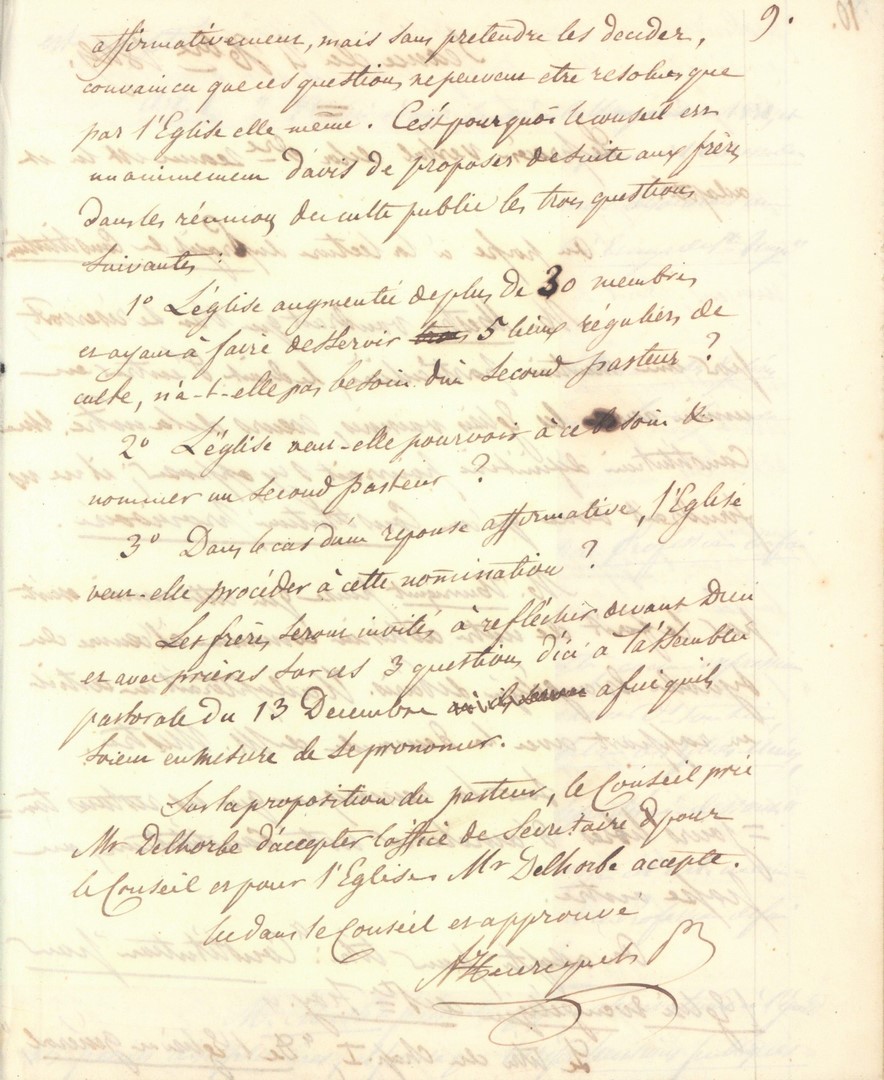 9.
affirmativement, mais sans pretendre les decider,
convaincu que ces questions ne peuvent etre resolues que
par l'Eglise elle même. C'est pourquoi le conseil est
unanimement d'avis de proposer de suite aux frères
Dans les réunions du culte public les trois questions
suivantes :
1º L'église augmentée de plus de 30 membres
et ayant à faire desservir 5 lieux réguliers de
culte, n'a-t-elle pas besoin d'un second pasteur ?
2º L'église veut-elle pourvoir à ce besoin &
nommer un second pasteur ?
3º Dans le cas d'une reponse affirmative, l'Eglise
veut-elle procéder à cette nomination ?
Les frères seront invités à reflechir devant Dieu
et avec prières sur ces 3 questions d'ici à l'assemblée
pastorale du 13 Decembre afin qu'ils
soient en mesure de se prononcer.
Sur la proposition du pasteur, le Conseil prie
Mr Delhorbe d'accepter l'office de Secretaire & pour
le Conseil et pour l'Eglise. Mr Delhorbe accepte.
lu dans le Conseil et approuvé
A Henriquet